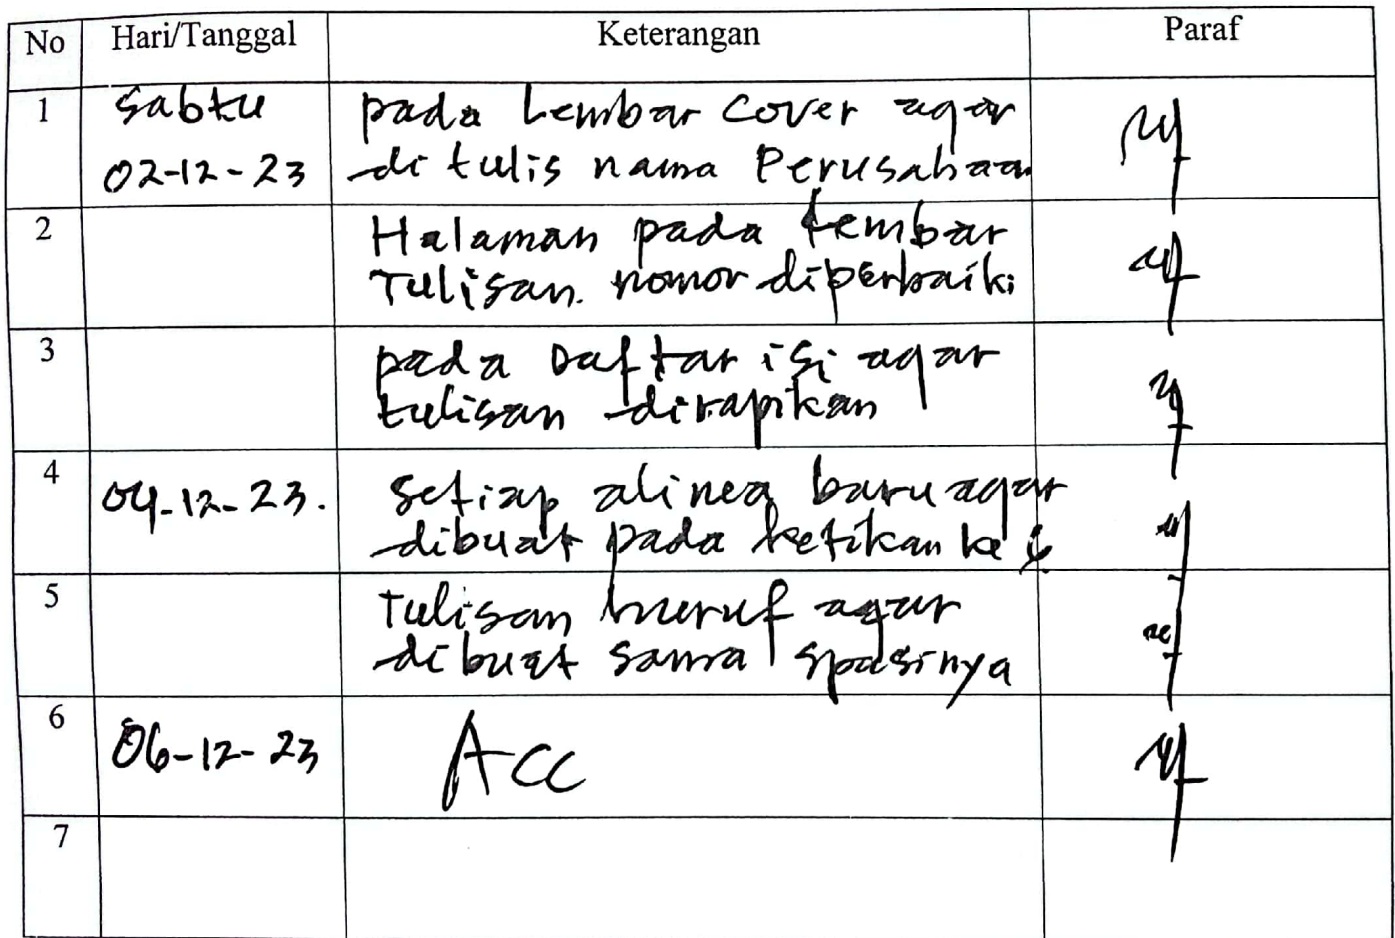 No Hari/Tanggal Keterangan Paraf
1 Sabtu pada Lembar Cover agar
02-12-23 di tulis nama Perusahaan
2 Halaman pada Lembar
Tulisan. nomor diperbaiki
3 pada Daftar isi agar
tulisan dirapikan
4 04-12-23. setiap alinea baru agar
dibuat pada ketikan ke
5 Tulisan huruf agar
dibuat sama spasinya
6 06-12-23 Acc
7